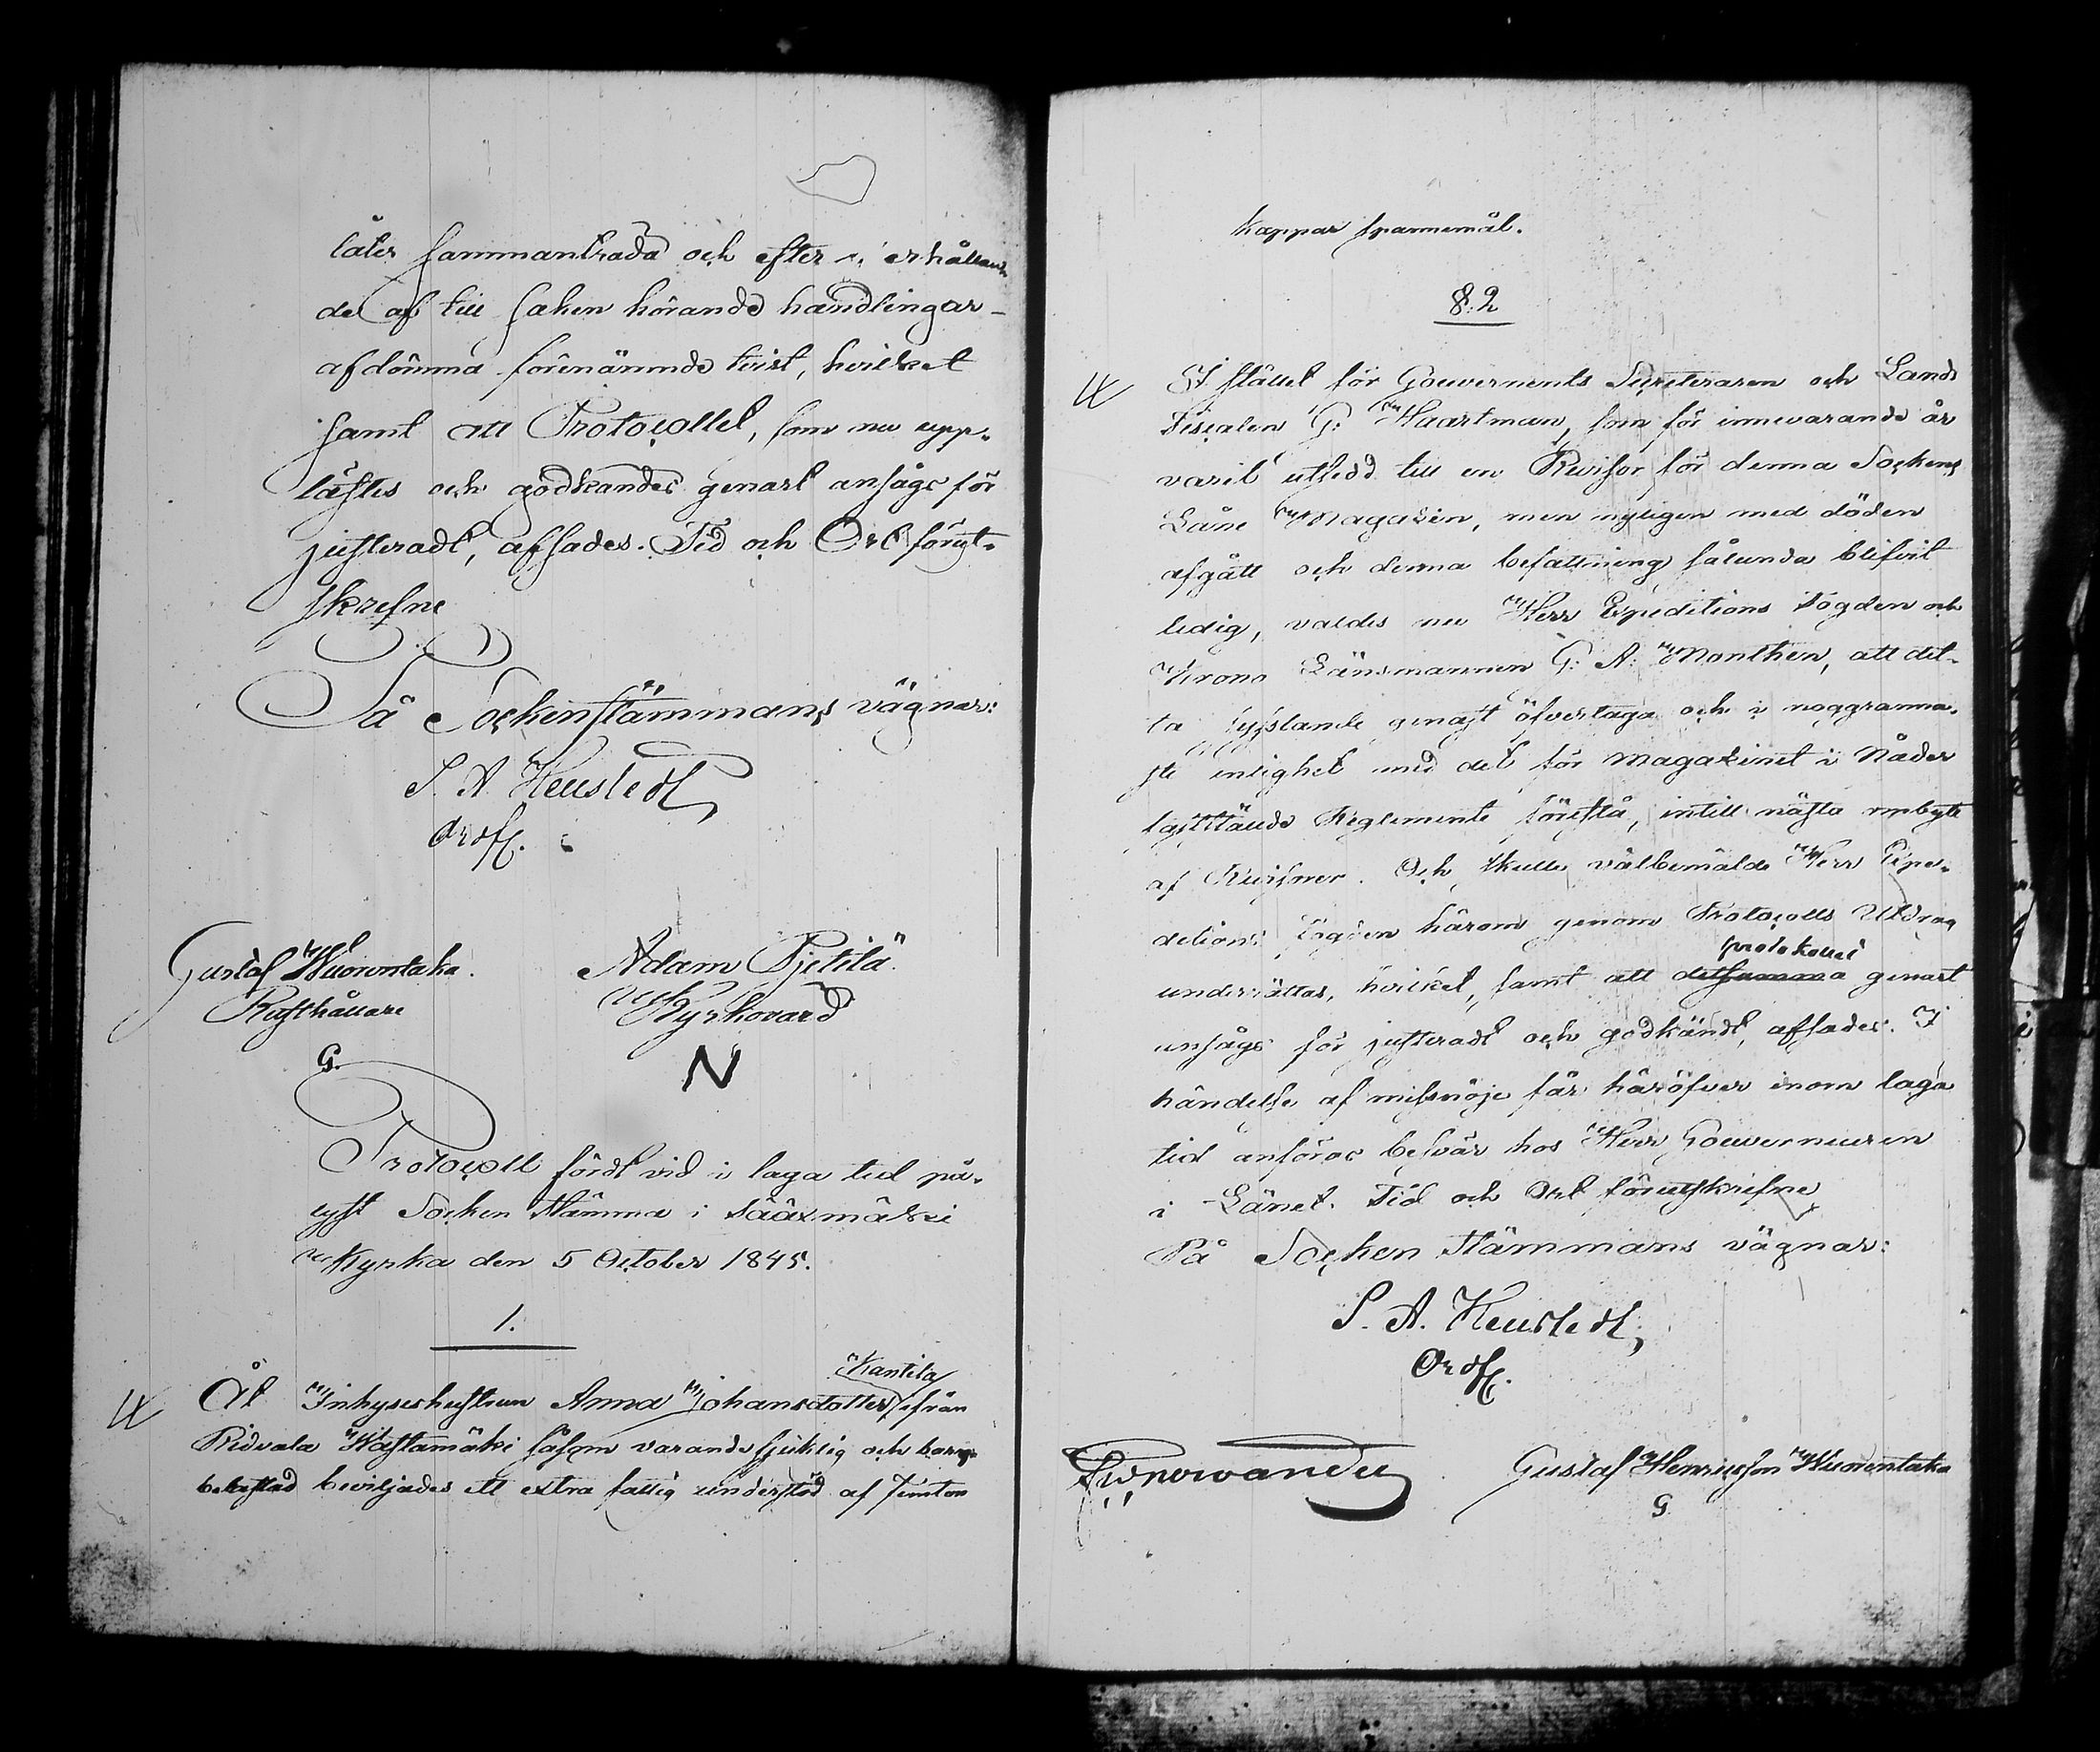 låter sammanträda och efter erhållan-
de af till saken hörande handlingar
afdömma förenämnde tvist, hvilket
samt att Protocollet, som nu upp-
lästes och godkändes genast ansågs för
justeradt, afsades. Tid och Ort förut-
skrefne
På Sockenstämmans vägnar:
S. A. Heustedt
Ordf.
Gustaf Wuorentaka. Adam Pjetilä
Rusthållare Kyrkovard
G. N
Protocoll fördt vid i laga tid på-
lyst Socken Stämma i Sääxmäki
Kyrka den 5 October 1845.
1.
Kantila
Åt Inhyseshustrun Anna Johansdotter ifrån
Ridvala Hästamäki såsom varande sjuklig och barn-
belastad beviljades ett extra fattig understöd af femton
kappar spannemål.
§. 2
I stället för Gouvernements Secreteraren och Lands
Fiscalen G. Haartman, som för innevarande år
varit utsedd till en Revisor för denna Sockens
Låne Magazin, men nyligen med döden
afgått och denna befattning sålunda blifvit
ledig, valdes nu Herr Expeditions Fogden och
Krono Länsmannen G: A: Monthen, att det-
ta sysslande genast öfvertaga och i noggranna-
ste enlighet med det för Magazinet i Nåder
faststälde Reglemente förestå, intill nästa ombyte
af Revisorer. Och skulle välbemälde Herr Expe-
ditions Fogden härom genom Protocolls Utdrag
protokollet
underrättas, hvilket, samt att detsamma genast
ansågs för justeradt och godkändt, afsades. I
händelse af missnöje får häröfver inom laga
tid anföras besvär hos Herr Gouverneuren
i Länet. Tid och Ort förutskrifne
På Socken Stämmans vägnar:
S. A. Heustedt,
Ordf.
Gustaf Henricsson Wuorentaka
G